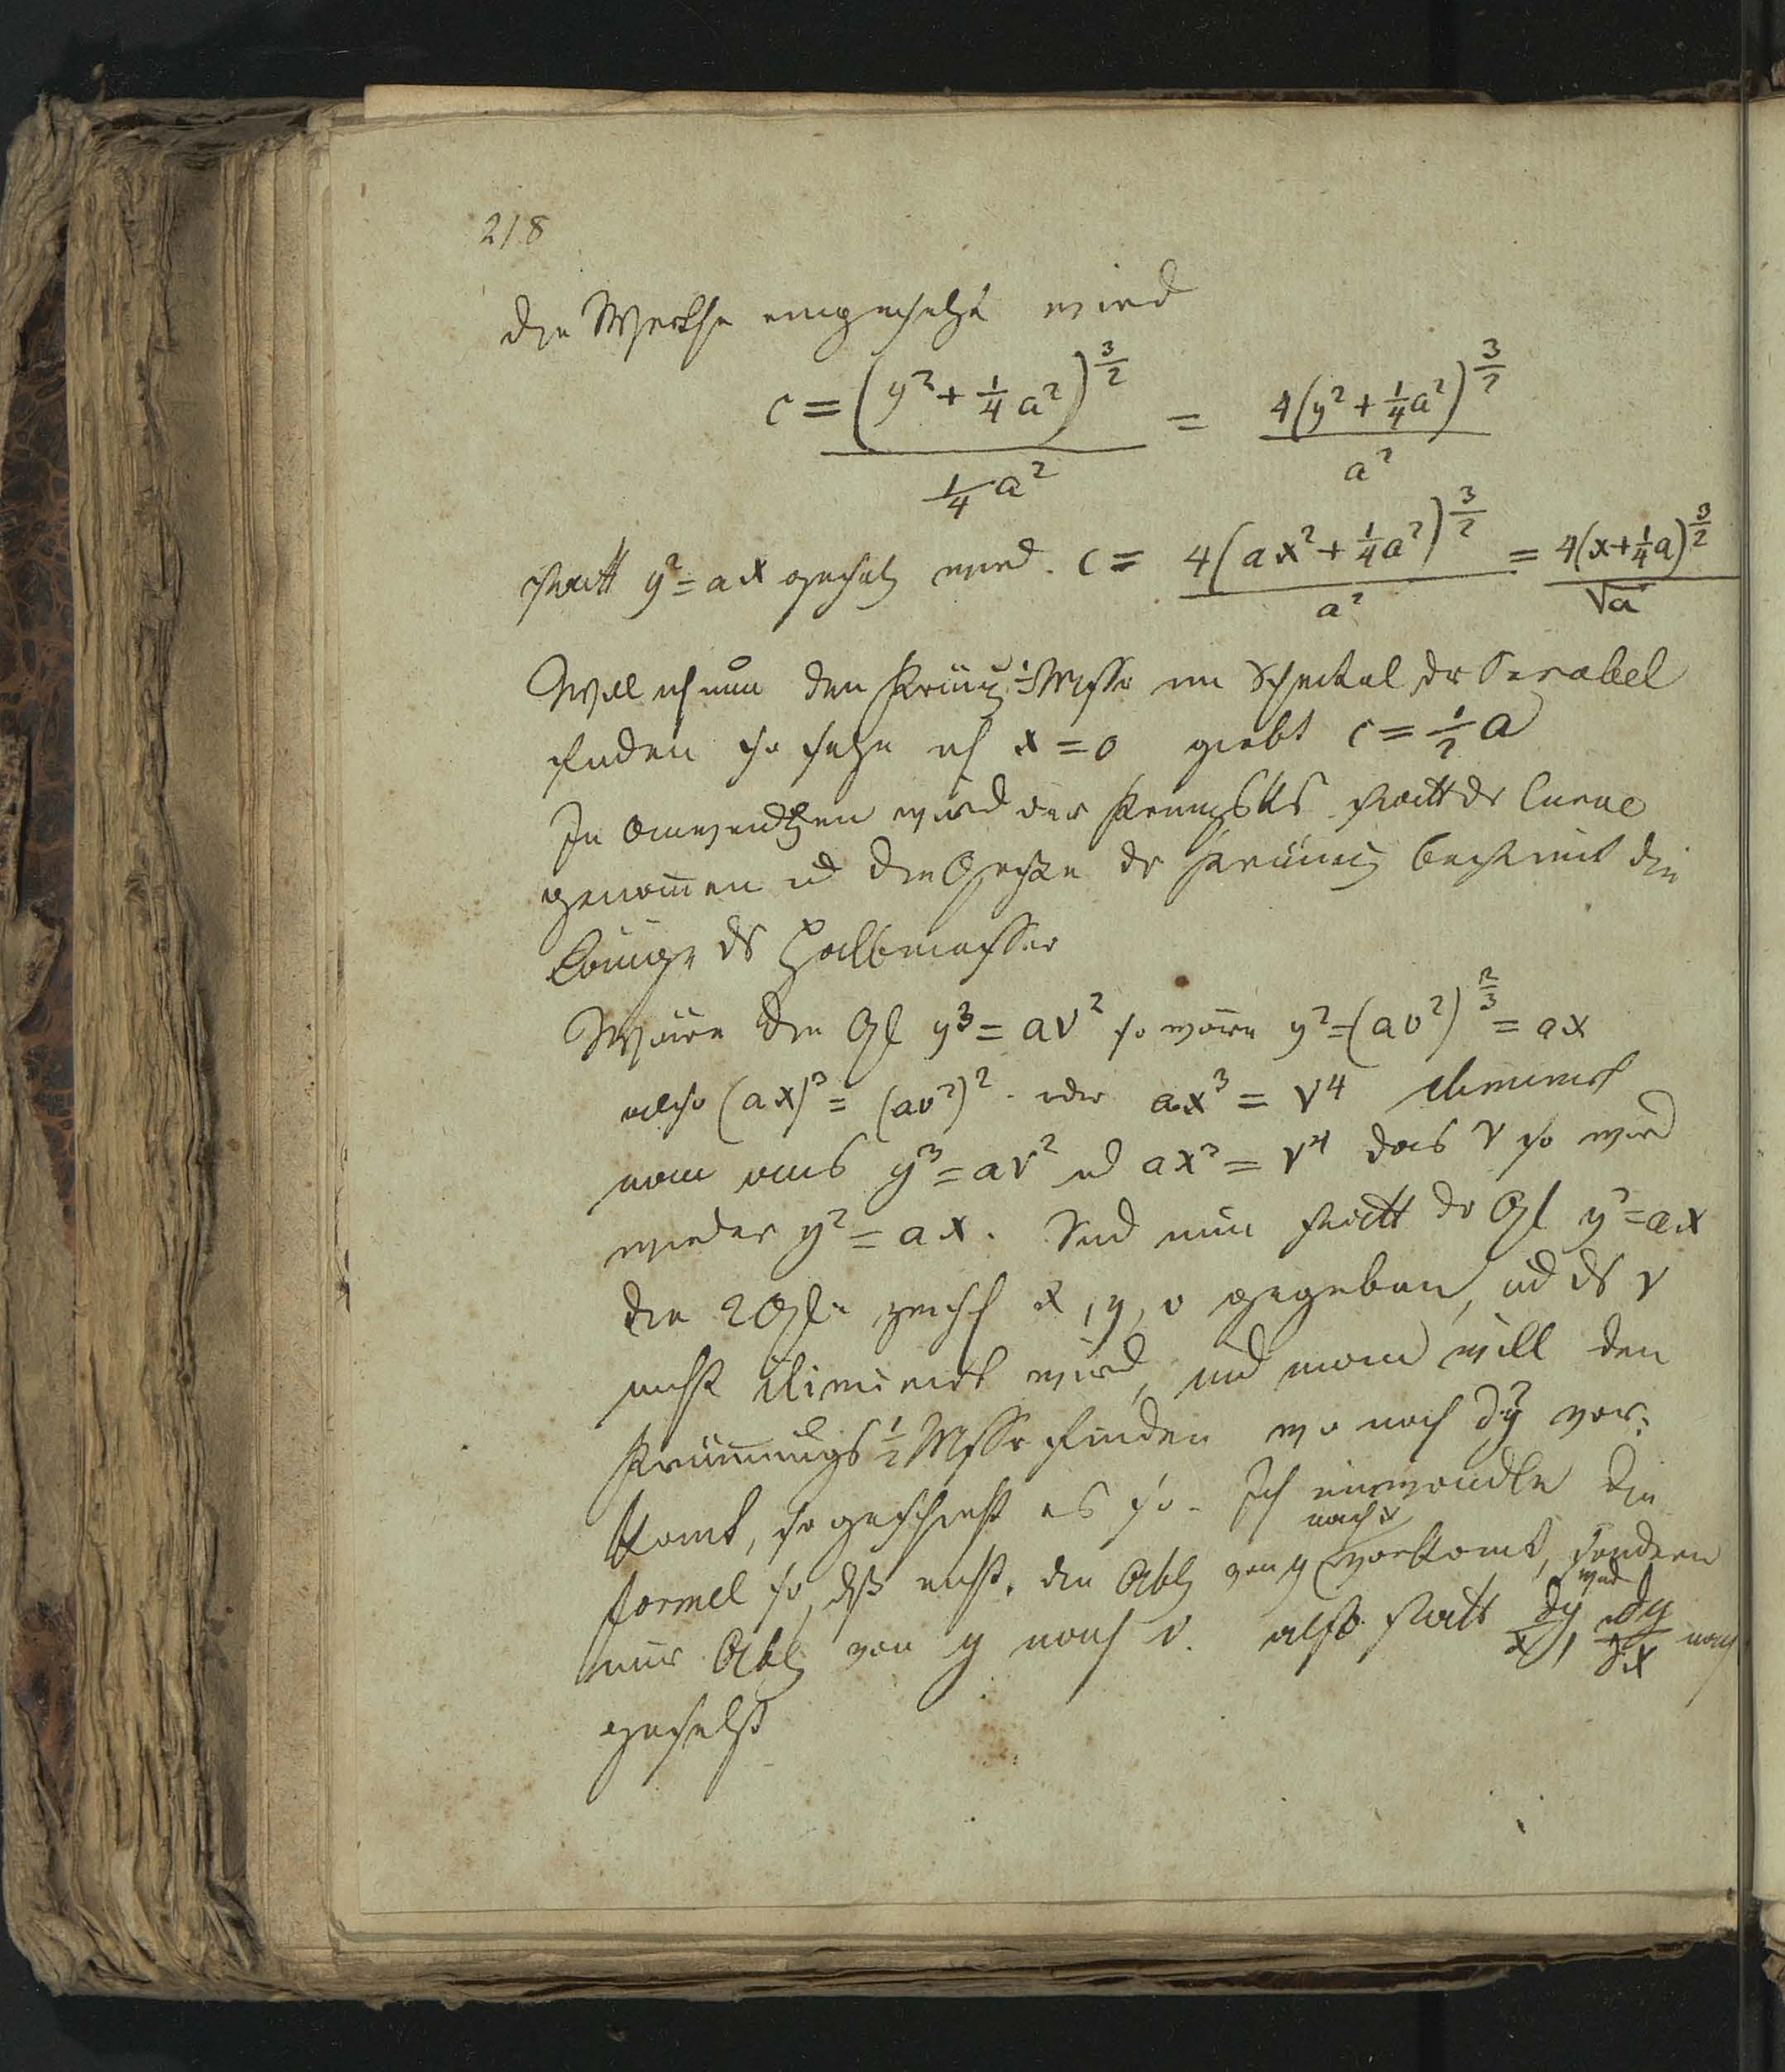 218
die Werthe eingesetzt wird
c = (y² + 1/4 a²)^3/2 / 1/4 a² = 4(y² + 1/4 a²)^3/2 / a²
statt y² = ax gesetz wird. c = 4(ax² + 1/4 a²)^3/2 / a² = 4(x + 1/4 a)^3/2 / √a
Will ich nun den Krümg 1/2 Mssr im Scheitel dr Parabel
finden so setze ich x = 0 giebt c = 1/2 a
In Anwendgen wird der statt dr Curve
genom̅en ud die Größe dr Krüm̅g bestimt die
Länge ds Halbmesser
Wäre die Gl y³ = av² so wäre y² = (av²)^2/3 = ax
also (ax)³ = (av²)² oder ax³ = v⁴ eliminirt
man aus y³ = av² ud ax³ = v⁴ das v so wird
wieder y² = ax. Sind nun statt dr Gl y² = ax
die 2 Gl. zwisch x, y, v gegeben, ud ds v
nicht eliminirt wird, und man will den
Krüm̅ungs 1/2 Mssr finden wo noch d²y vor-
komt, so geschieht es so. Ich umwandle die
nach x
formel so, dß nicht die Ablg von y vorkomt, sondern
wird
nur Ablg von y nach v. also statt dy/x, dy/dx nach
gesetzt